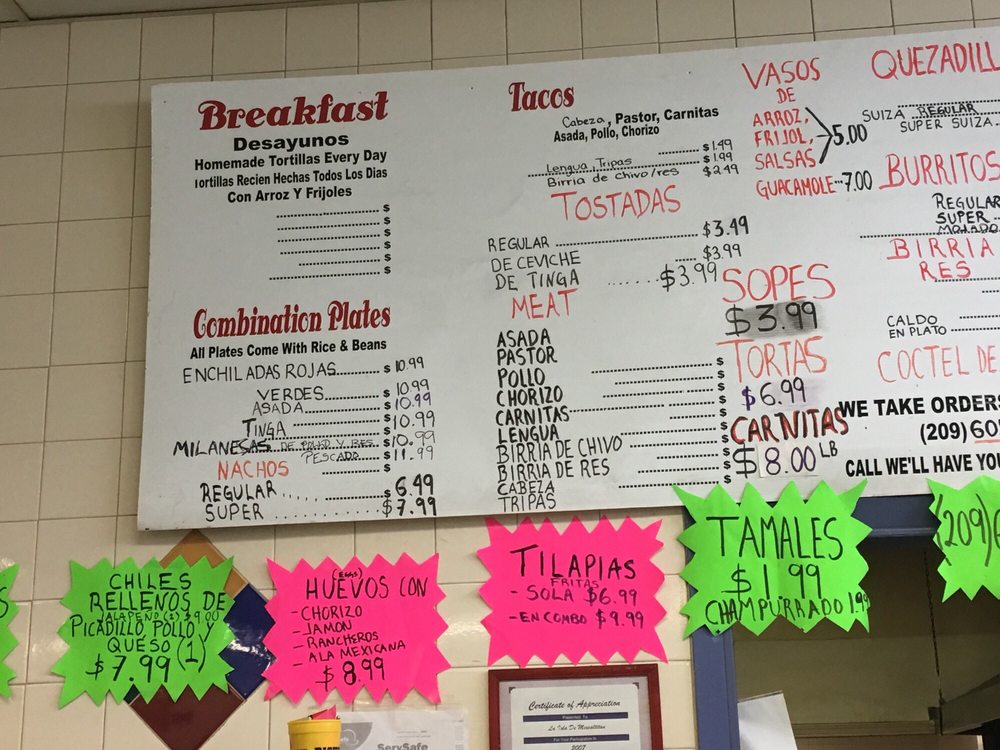 Breakfast
Desayunos
Homemade Tortillas Every Day
Tortillas Recien Hechas Todos Los Dias
Con Arroz Y Frijoles
$
$
$
$
$
$
Combination Plates
All Plates Come With Rice & Beans
ENCHILADAS ROJAS $ 10.99
VERDES $ 10.99
ASADA $ 10.99
TINGA $ 10.99
MILANESAS DE POLLO Y RES $ 10.99
PESCADO $ 11.99
NACHOS $
REGULAR $ 6.49
SUPER $ 7.99
Tacos
Cabeza, Pastor, Carnitas
Asada, Pollo, Chorizo
$ 1.49
Lengua, Tripas $ 1.99
Birria de chivo/res $ 2.49
TOSTADAS
REGULAR $3.49
DE CEVICHE $3.99
DE TINGA $3.99
MEAT
ASADA
PASTOR
POLLO $
CHORIZO $
CARNITAS $
LENGUA $
BIRRIA DE CHIVO $
BIRRIA DE RES $
CABEZA $
TRIPAS
VASOS
DE
ARROZ,
FRIJOL, 5.00
SALSAS
GUACAMOLE 7.00
SOPES
$3.99
TORTAS
$6.99
CARNITAS
$8.00 LB
QUEZADILL
SUIZA REGULAR
SUPER SUIZA
BURRITOS
REGULAR
SUPER
MOJADO
BIRRIA
RES
CALDO
EN PLATO
COCTEL DE
WE TAKE ORDERS
(209) 60
CALL WE'LL HAVE YOU
S
CHILES
RELLENOS DE
JALAPEÑO (2) $9.00
PICADILLO POLLO Y
QUESO (1)
$7.99
(EGGS)
HUEVOS CON
- CHORIZO
- JAMON
- RANCHEROS
- A LA MEXICANA
$ 8.99
TILAPIAS
FRITAS
- SOLA $6.99
- EN COMBO $9.99
TAMALES
$1.99
CHAMPURRADO 1.99
(209)6
Certificate of Appreciation
Presented To
La Isla De Mexcaltitan
For Your Participation In
2007
ServSafe